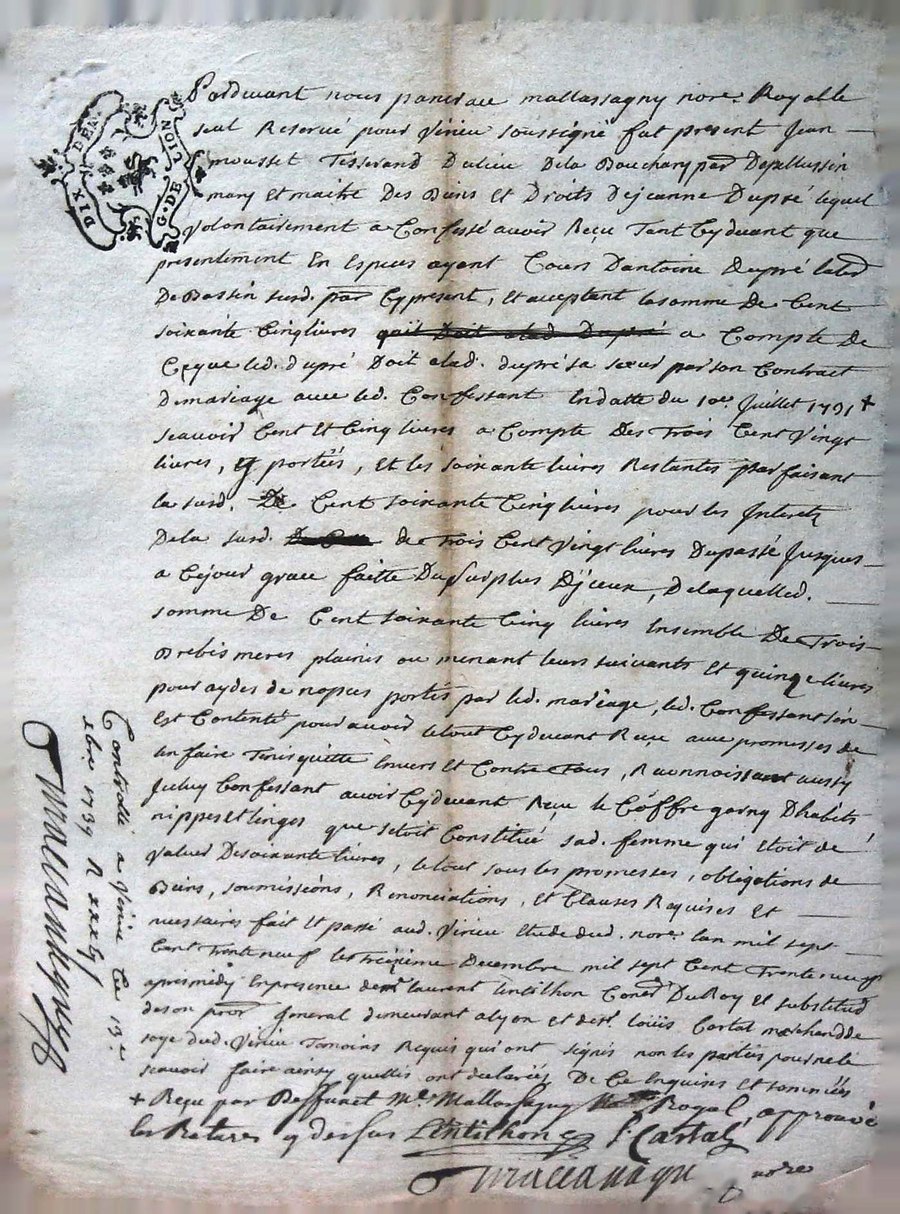 DIX DEN. G. DE LION
Pardevant nous pancrace mallassagny nore. Royalle
seul Reservé pour virieu soussigné fut present Jean
mousset Tisserand Dulieu Dela Bouchary prd Depellussin
mary et maitre Des Biens et Droits Dejeanne Dupré lequel
volontairement a Confessé avoir Reçu Tant Cydevant que
presentement En Especes ayant Cours Dantoine Dupré labd
De Bassin susd. par Cypresent, et acceptant la somme De Cent
soixante Cinq livres qail Doit alad Dupré a Compte De
Ce que led. dupré Doit alad. dupré sa sœur par son Contract
De mariage avec led. Confessant En datte du 10e Juillet 1731 +
scavoir Cent et Cinq livres a Compte Des trois Cent vingt
livres, y portées, et les soixante livres Restantes parfaisant
la susd. De Cent soixante Cinq livres pour les Interets
Dela susd. de trois Cent vingt livres Dupassé Jusques
a Cejour grace faitte Du surplus Dyceux, Delaquelled.
somme De Cent soixante Cinq livres Ensemble De trois
Brebis meres plaines ou menant leurs suivants et quinze livres
pour aydes de nopces portés par led. mariage, led. Confessant sen
Est Contenté pour avoir letout Cydevant Reçu avec promesses de
len faire Tenir quitte Envers et Contre tous, Raconnoissant aussy
Jceluy Confessant avoir Cydevant Reçu le Coffre garny Dhabits
nippes et linges que setoit Constitué sad. femme qui Etoit de
valeur Desoixante livres, letout sous les promesses, obligations de
Biens, soumissions, Renonciations, et Clauses Requises et
necessaires fait et passé aud. virieu Etude dud. nore. lan mil sept
Cent Trente neuf le treizieme Decembre mil sept Cent trente neuf
apresmidy En presence de mr laurent lentilhon Coner Du Roy et substitud
de son procr general demeurant alyon et de sr. loüis Cartal marchand de
soye dud. virieu Temoins Requis qui ont signés non les parties pour ne le
scavoir faire ainsy quelles ont declarées De Ce Enquises et sommées
+ Reçu par Deffunct Me Mallassagny Royal, approuvé
les Ratures y dessus Lentilhon L Cartal
Mallassagny nore
Controllé a virieu Ce 13e
xbre 1739 R
Mallassagny